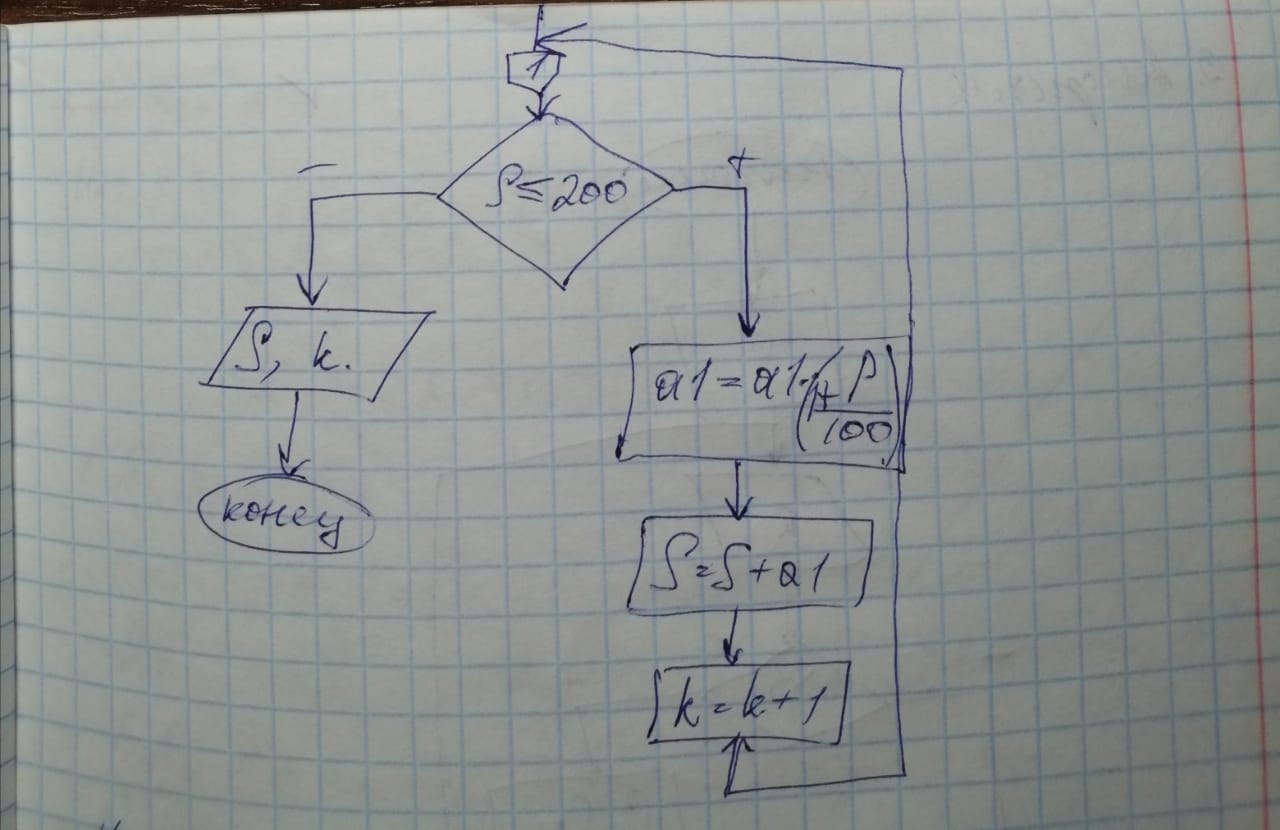 1
S≤200
-
+
S, k.
конец
a1=a1·(1+P/100)
S=S+a1
k=k+1